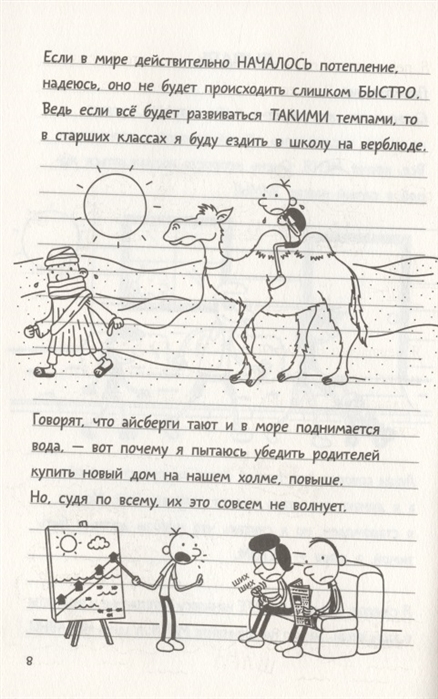 Если в мире действительно НАЧАЛОСЬ потепление,
надеюсь, оно не будет происходить слишком БЫСТРО.
Ведь если всё будет развиваться ТАКИМИ темпами, то
в старших классах я буду ездить в школу на верблюде.
Говорят, что айсберги тают и в море поднимается
вода, — вот почему я пытаюсь убедить родителей
купить новый дом на нашем холме, повыше.
Но, судя по всему, их это совсем не волнует.
ШИХ
ШИХ
8